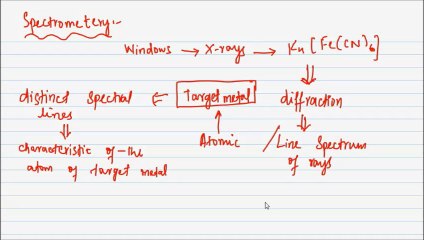 Spectrometery:-
Windows → X-rays → K4 [Fe(CN)6]
distinct spectral lines ⇐ Target metal
diffraction
characteristic of the atom of target metal
Atomic
/Line Spectrum of rays